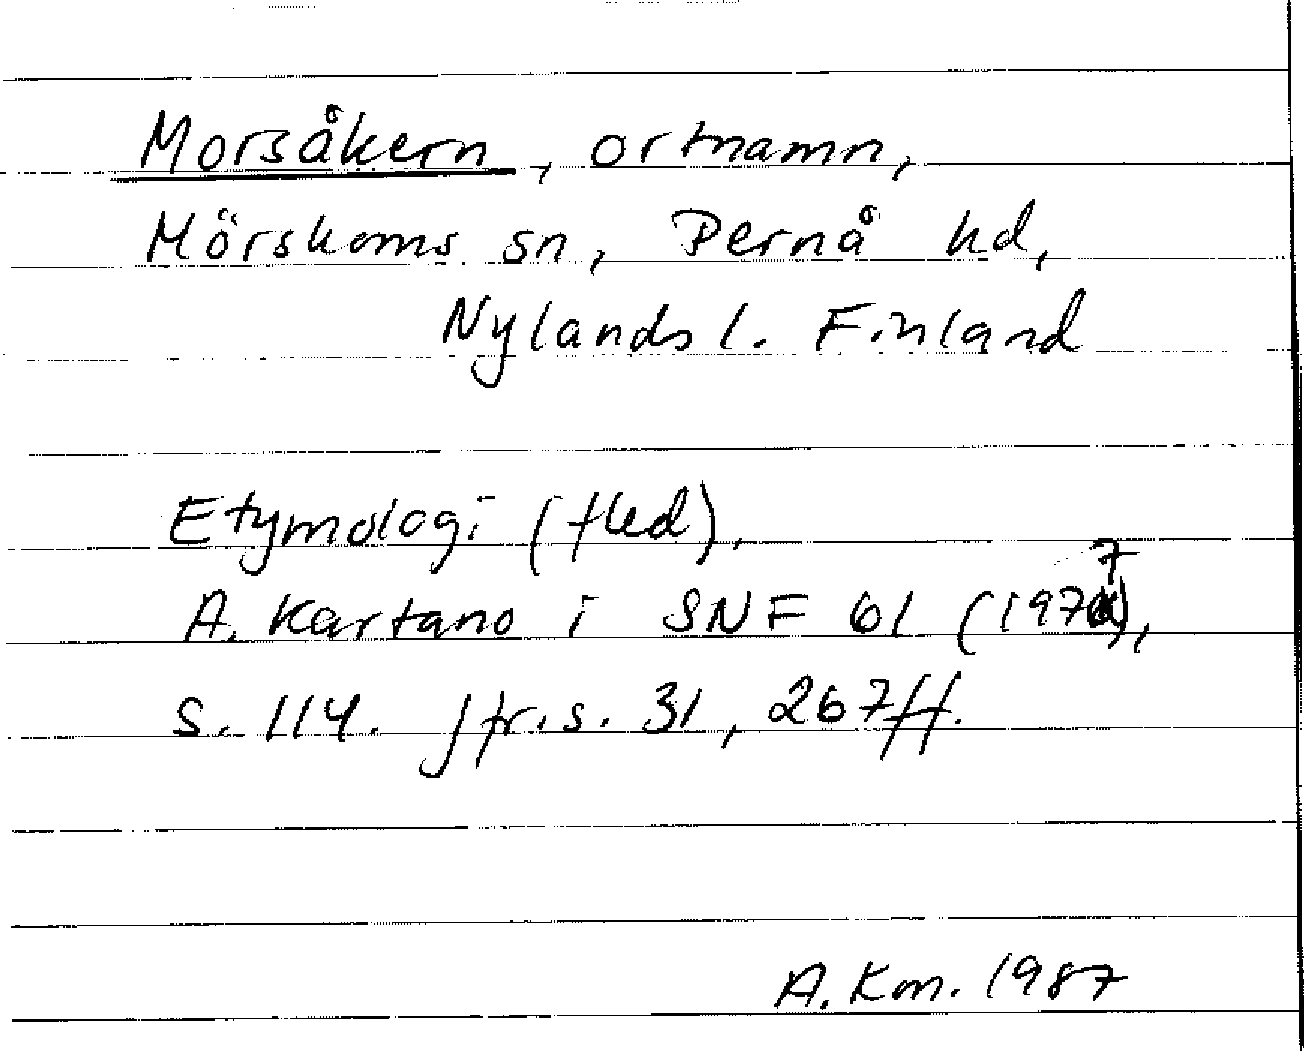 Morsåkern, ortnamn,
Mörskoms sn, Pernå hd,
Nylands l. Finland
Etymologi (fled),
A. Kartano i SNF 61 (1977),
s. 114. Jfr. s. 31, 267 ff.
A. Km. 1987